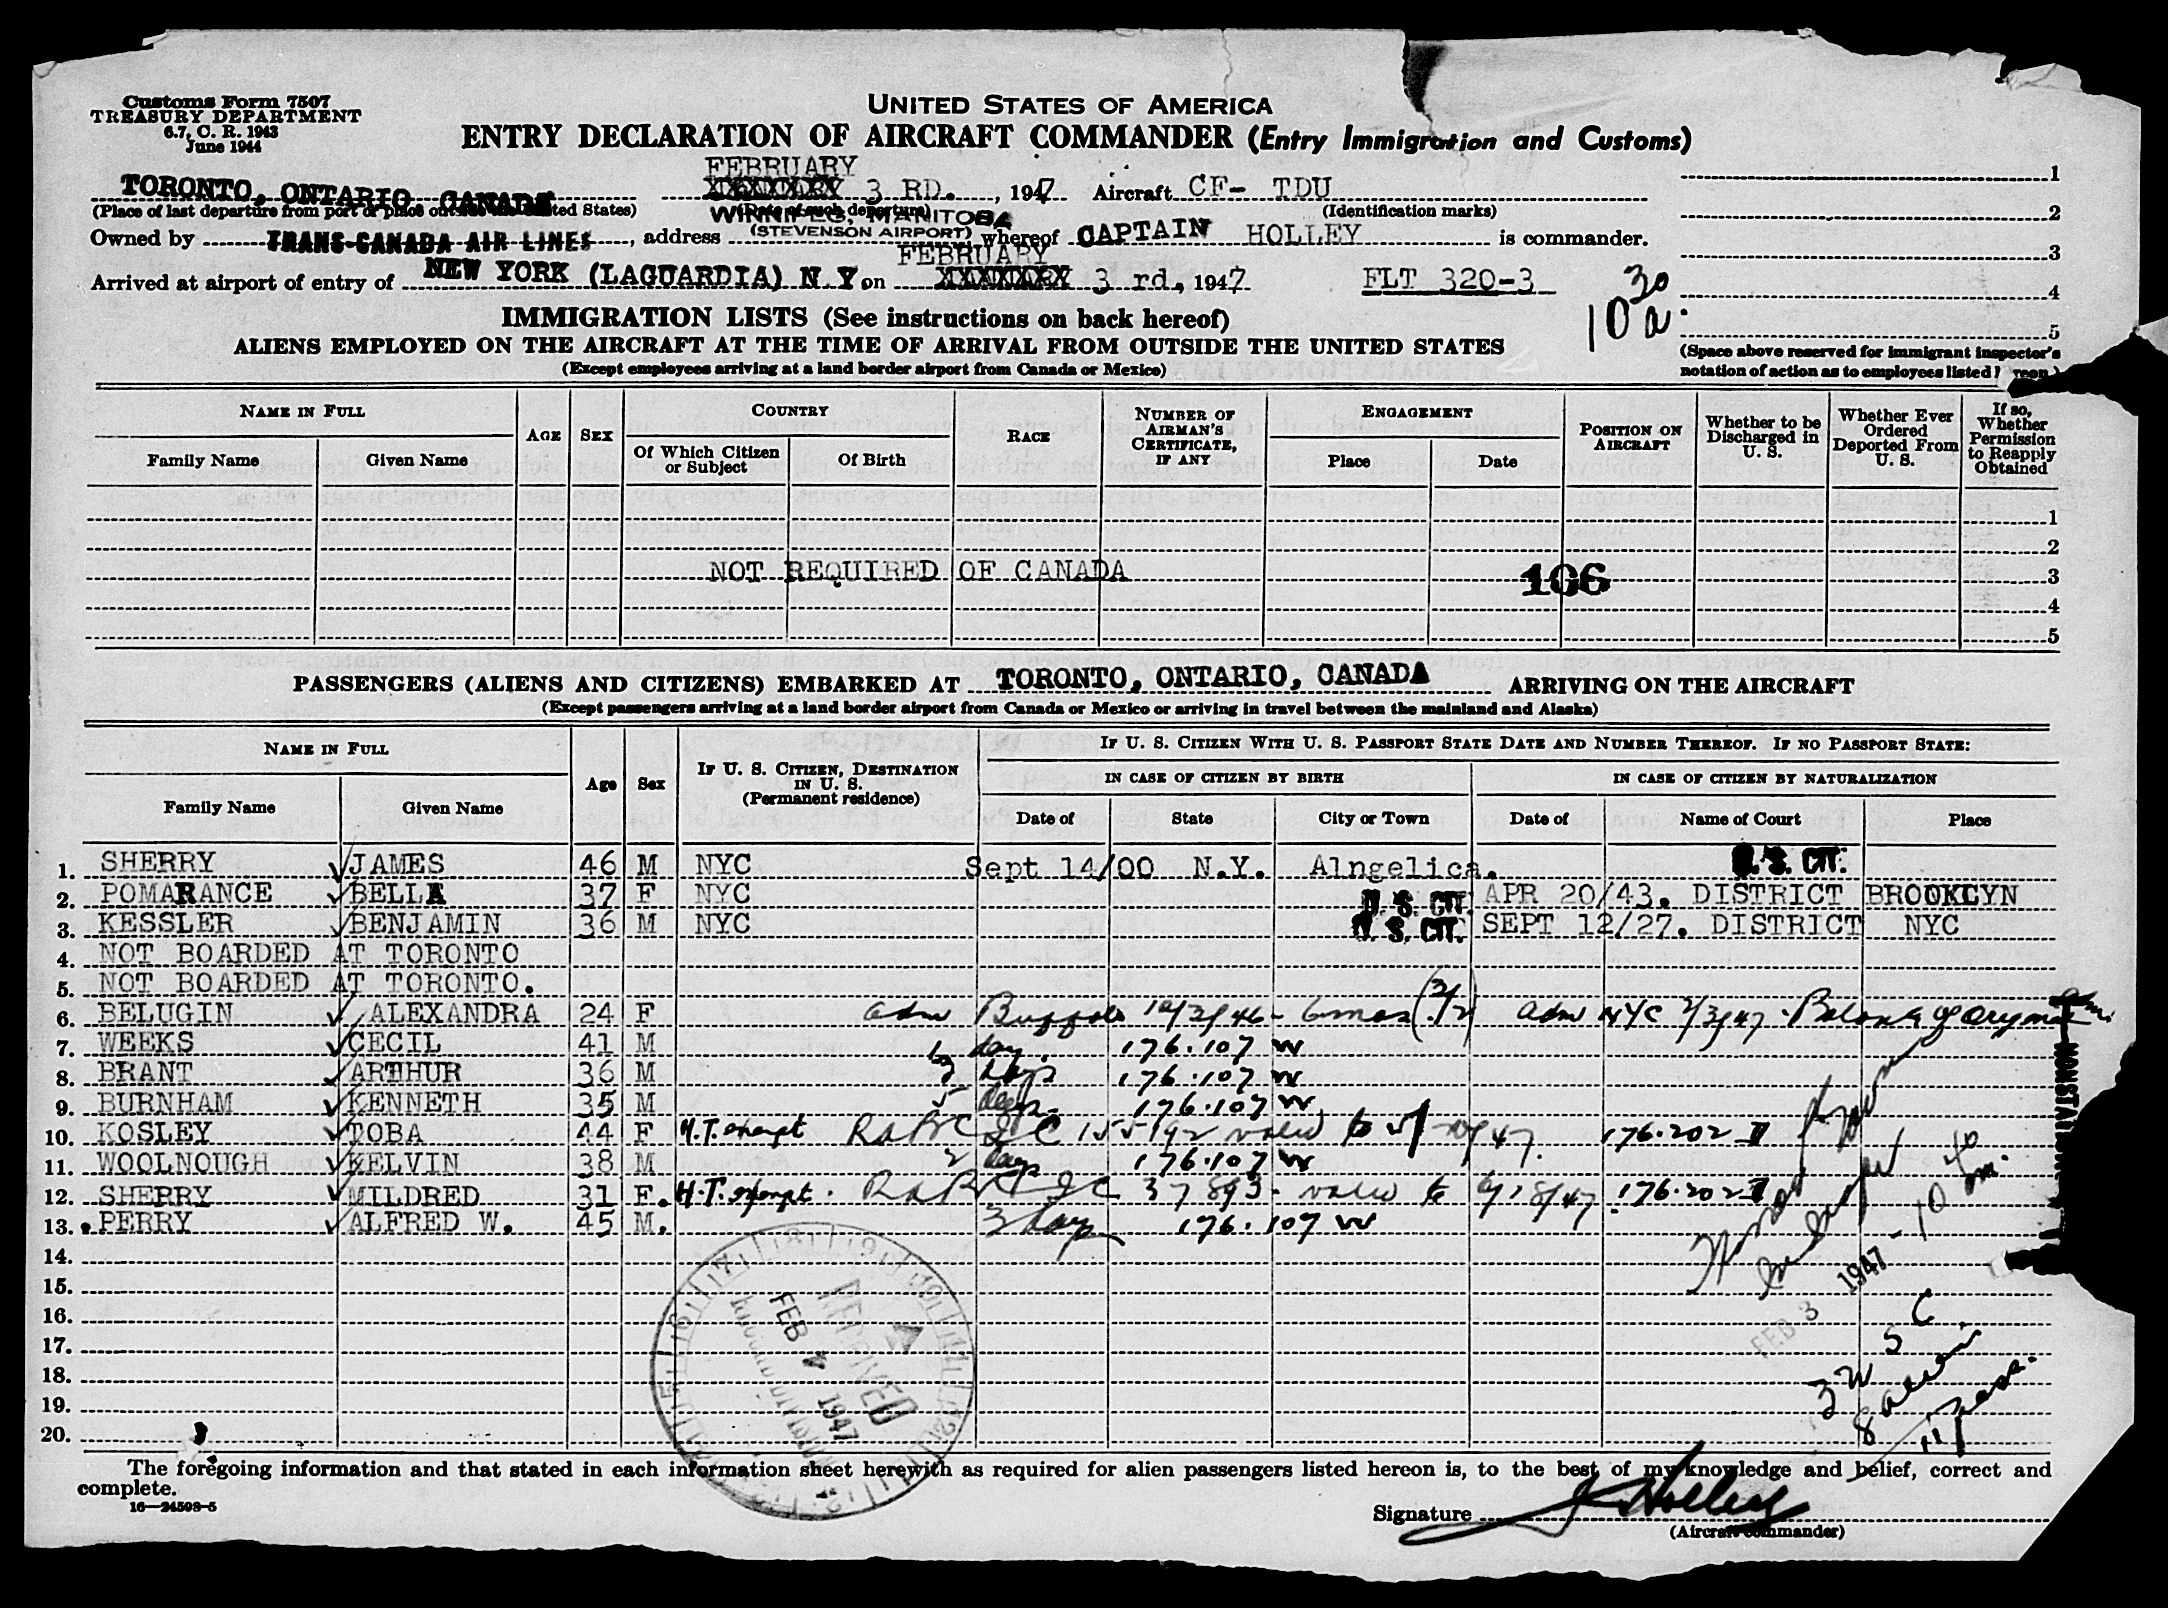 Customs Form 7507
TREASURY DEPARTMENT
6.7, C. R. 1943
June 1944
UNITED STATES OF AMERICA
ENTRY DECLARATION OF AIRCRAFT COMMANDER (Entry Immigration and Customs)
FEBRUARY
TORONTO, ONTARIO CANADA 3 RD. , 1947 Aircraft CF- TDU 1
(Place of last departure from port or place outside the United States) (Date of such departure) (Identification marks)
WINNIPEG, MANITOBA 2
Owned by TRANS-CANADA AIR LINES , address (STEVENSON AIRPORT) whereof CAPTAIN HOLLEY is commander.
FEBRUARY 3
Arrived at airport of entry of NEW YORK (LAGUARDIA) N Y. on 3 rd, 1947 FLT 320-3 10 30 a. 4
IMMIGRATION LISTS (See instructions on back hereof) 5
ALIENS EMPLOYED ON THE AIRCRAFT AT THE TIME OF ARRIVAL FROM OUTSIDE THE UNITED STATES
(Space above reserved for immigrant inspector's
(Except employees arriving at a land border airport from Canada or Mexico)
notation of action as to employees listed
NAME IN FULL COUNTRY ENGAGEMENT
Family Name Given Name AGE SEX Of Which Citizen or Subject Of Birth RACE NUMBER OF AIRMAN'S CERTIFICATE, IF ANY Place Date POSITION ON AIRCRAFT Whether to be Discharged in U. S. Whether Ever Ordered Deported From U. S. If so, Whether Permission to Reapply Obtained
1
2
NOT REQUIRED OF CANADA 106 3
4
5
PASSENGERS (ALIENS AND CITIZENS) EMBARKED AT TORONTO, ONTARIO, CANADA ARRIVING ON THE AIRCRAFT
(Except passengers arriving at a land border airport from Canada or Mexico or arriving in travel between the mainland and Alaska)
NAME IN FULL Age Sex IF U. S. CITIZEN, DESTINATION IN U. S. (Permanent residence) IF U. S. CITIZEN WITH U. S. PASSPORT STATE DATE AND NUMBER THEREOF. IF NO PASSPORT STATE:
IN CASE OF CITIZEN BY BIRTH IN CASE OF CITIZEN BY NATURALIZATION
Family Name Given Name Date of State City or Town Date of Name of Court Place
1. SHERRY JAMES 46 M NYC Sept 14/00 N.Y. Alngelica. U. S. CIT.
2. POMARANCE BELLA 37 F NYC U. S. CIT. APR 20/43. DISTRICT BROOKLYN
3. KESSLER BENJAMIN 36 M NYC U. S. CIT. SEPT 12/27. DISTRICT NYC
4. NOT BOARDED AT TORONTO
5. NOT BOARDED AT TORONTO.
6. BELUGIN ALEXANDRA 24 F adm Buffalo 12/2/46 - 6 mos adm NYC 2/3/47 - Balance of orig
7. WEEKS CECIL 41 M day. 176.107 W
8. BRANT ARTHUR 36 M 3 days 176.107 W
9. BURNHAM KENNETH 35 M 5 days 176.107 W
10. KOSLEY TOBA 44 F H.T. exempt 155192 valid to 47. 176.202 II
11. WOOLNOUGH KELVIN 38 M 2 days 176.107 W
12. SHERRY MILDRED 31 F. H.T. exempt. 37893 - valid to 47 176.202 II
13. PERRY ALFRED W. 45 M. 3 days 176.107 W
14.
15.
16.
17.
18.
19.
20.
RECEIVED
FEB 1947
FEB 3 1947 - 10
3 U S C
8 aliens
11 pass.
The foregoing information and that stated in each information sheet herewith as required for alien passengers listed hereon is, to the best of my knowledge and belief, correct and
complete.
16—24598-5
Signature Holley
(Aircraft commander)